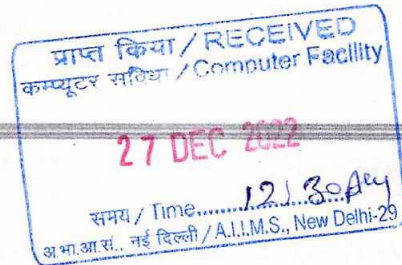 प्राप्त किया / RECEIVED
कम्प्यूटर सुविधा / Computer Facility
27 DEC 2022
समय / Time............12:30 PM
अ.भा.आ.सं., नई दिल्ली / A.I.I.M.S., New Delhi-29